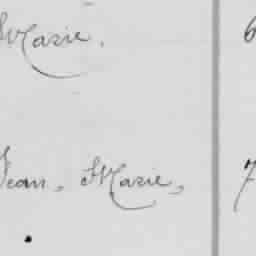 Marie. 6
Jean, Marie, 7